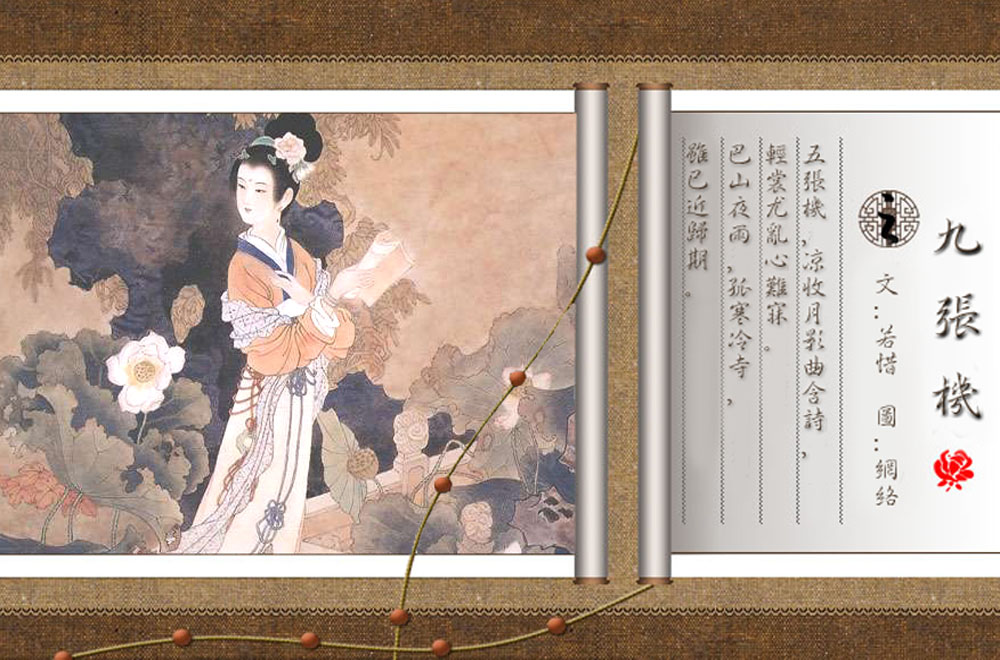 九張機
之
文：若惜　圖：網絡
五張機，凉收月影曲含詩，
輕裳尤亂心難寐。
巴山夜雨，孤寒冷寺，
雖已近歸期。